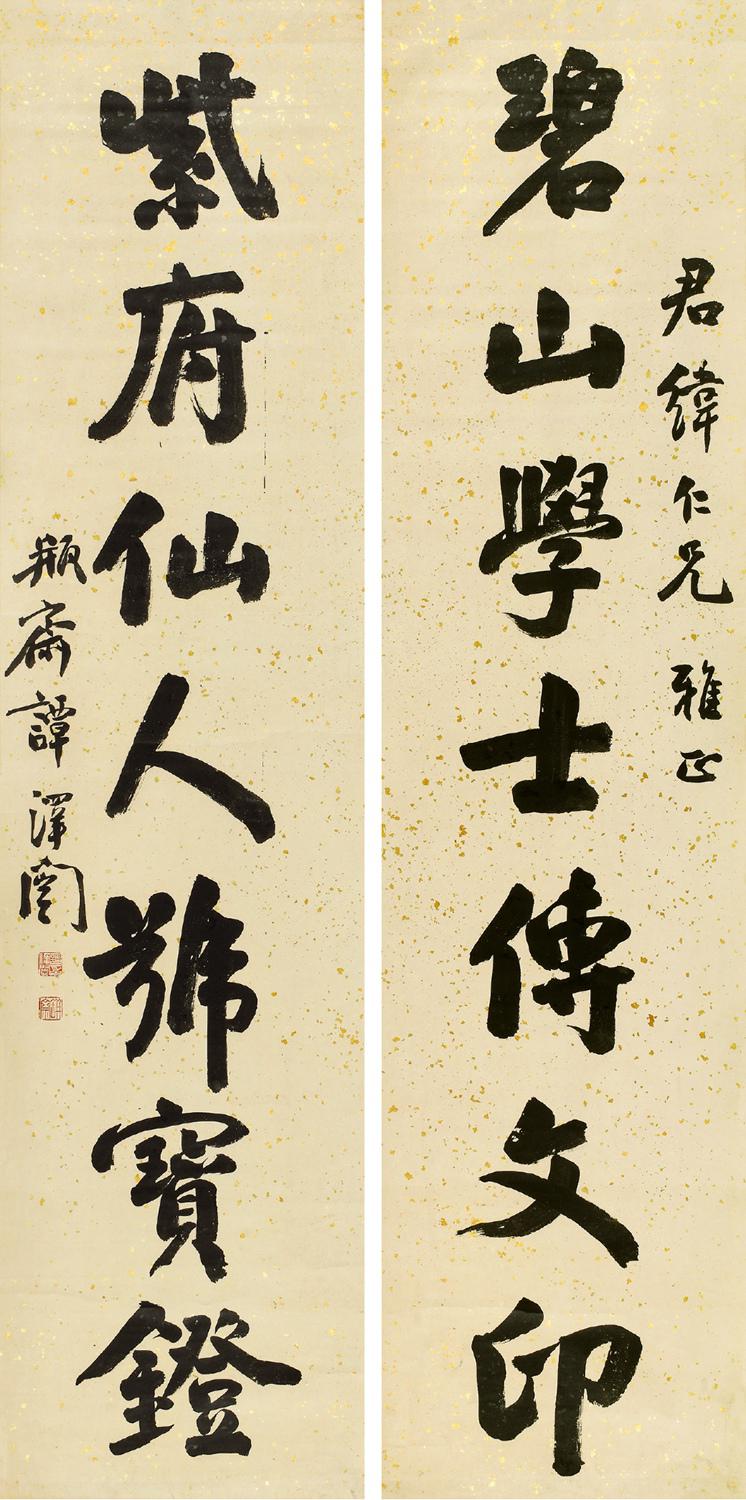 君緯仁兄雅正
碧山學士傳文印
紫府仙人號寶鐙
瓶齋譚澤闓